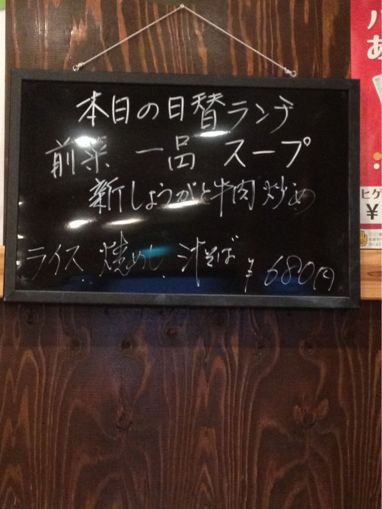 本日の日替ランチ
前菜 一品 スープ
新しょうがと牛肉炒め
ライス.焼めし.汁そば ¥680円
ヒゲ
¥